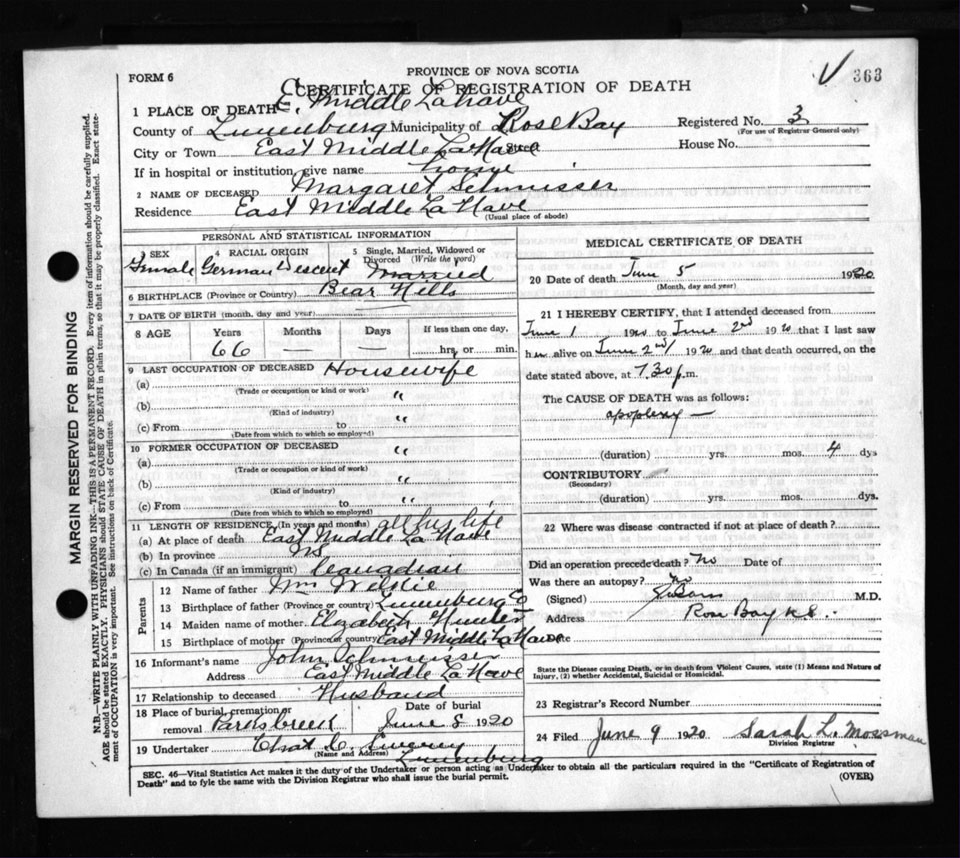 PROVINCE OF NOVA SCOTIA
363
FORM 6
CERTIFICATE OF REGISTRATION OF DEATH
1 PLACE OF DEATH E. Middle LaHave
County of Lunenburg Municipality of Rose Bay Registered No. 3
(For use of Registrar General only)
City or Town East Middle LaHave Street House No.
If in hospital or institution, give name
2 NAME OF DECEASED Margaret Schmisser
Residence East Middle La Have
(Usual place of abode)
PERSONAL AND STATISTICAL INFORMATION
3 SEX Female
4 RACIAL ORIGIN German Descent
5 Single, Married, Widowed or Divorced (Write the word) Married
6 BIRTHPLACE (Province or Country) Bear Hills
7 DATE OF BIRTH (month, day and year)
8 AGE Years Months Days If less than one day.
66 — — hrs. or min.
9 LAST OCCUPATION OF DECEASED Housewife
(a) "
(Trade or occupation or kind or work)
(b) "
(Kind of industry)
(c) From to "
(Date from which to which so employed)
10 FORMER OCCUPATION OF DECEASED "
(a) "
(Trade or occupation or kind of work)
(b) "
(Kind of industry)
(c) From to "
(Date from which to which so employed)
11 LENGTH OF RESIDENCE (In years and months) all his life
(a) At place of death East Middle La Have
(b) In province NS
(c) In Canada (if an immigrant) Canadian
Parents
12 Name of father Wm
13 Birthplace of father (Province or country) Lunenburg Co
14 Maiden name of mother Elizabeth
15 Birthplace of mother (Province or country) East Middle La Have
16 Informant's name John Schmeisser
Address East Middle La Have
17 Relationship to deceased Husband
18 Place of burial, cremation or removal Date of burial
June 8 1920
19 Undertaker Chas
(Name and Address) Lunenburg
MEDICAL CERTIFICATE OF DEATH
20 Date of death June 5 1920
(Month, day and year)
21 I HEREBY CERTIFY, that I attended deceased from
June 1 1920 to June 2nd 1920 that I last saw
h alive on June 2nd 1920 and that death occurred, on the
date stated above, at 7.30 p.m.
The CAUSE OF DEATH was as follows:
apoplexy —
(duration) yrs. mos. 4 dys
CONTRIBUTORY
(Secondary)
(duration) yrs. mos. dys.
22 Where was disease contracted if not at place of death?
Did an operation precede death? No Date of
Was there an autopsy? No
(Signed) M.D.
Address Rose Bay
Date
State the Disease causing Death, or in death from Violent Causes, state (1) Means and Nature of
Injury, (2) whether Accidental, Suicidal or Homicidal.
23 Registrar's Record Number
24 Filed June 9 1920 Sarah L. Mossman
Division Registrar
SEC. 46—Vital Statistics Act makes it the duty of the Undertaker or person acting as Undertaker to obtain all the particulars required in the "Certificate of Registration of
Death" and to fyle the same with the Division Registrar who shall issue the burial permit. (OVER)
MARGIN RESERVED FOR BINDING
N.B.—WRITE PLAINLY WITH UNFADING INK—THIS IS A PERMANENT RECORD. Every item of information should be carefully supplied.
AGE should be stated EXACTLY. PHYSICIANS should STATE CAUSE OF DEATH in plain terms, so that it may be properly classified. Exact state-
ment of OCCUPATION is very important. See instructions on back of Certificate.